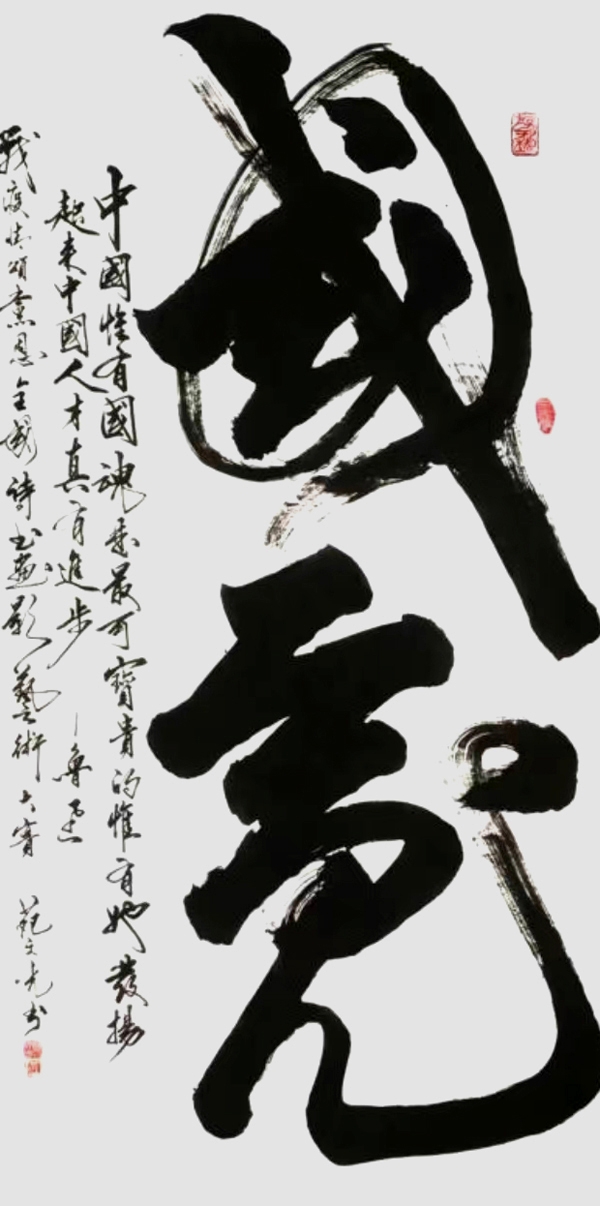 國魂
中國惟有國魂乖最可寶貴的惟有她發揚
起来中國人才真有進步
—魯迅
戰疫情頌黨恩全國詩书畫影藝術大賽 范文光书